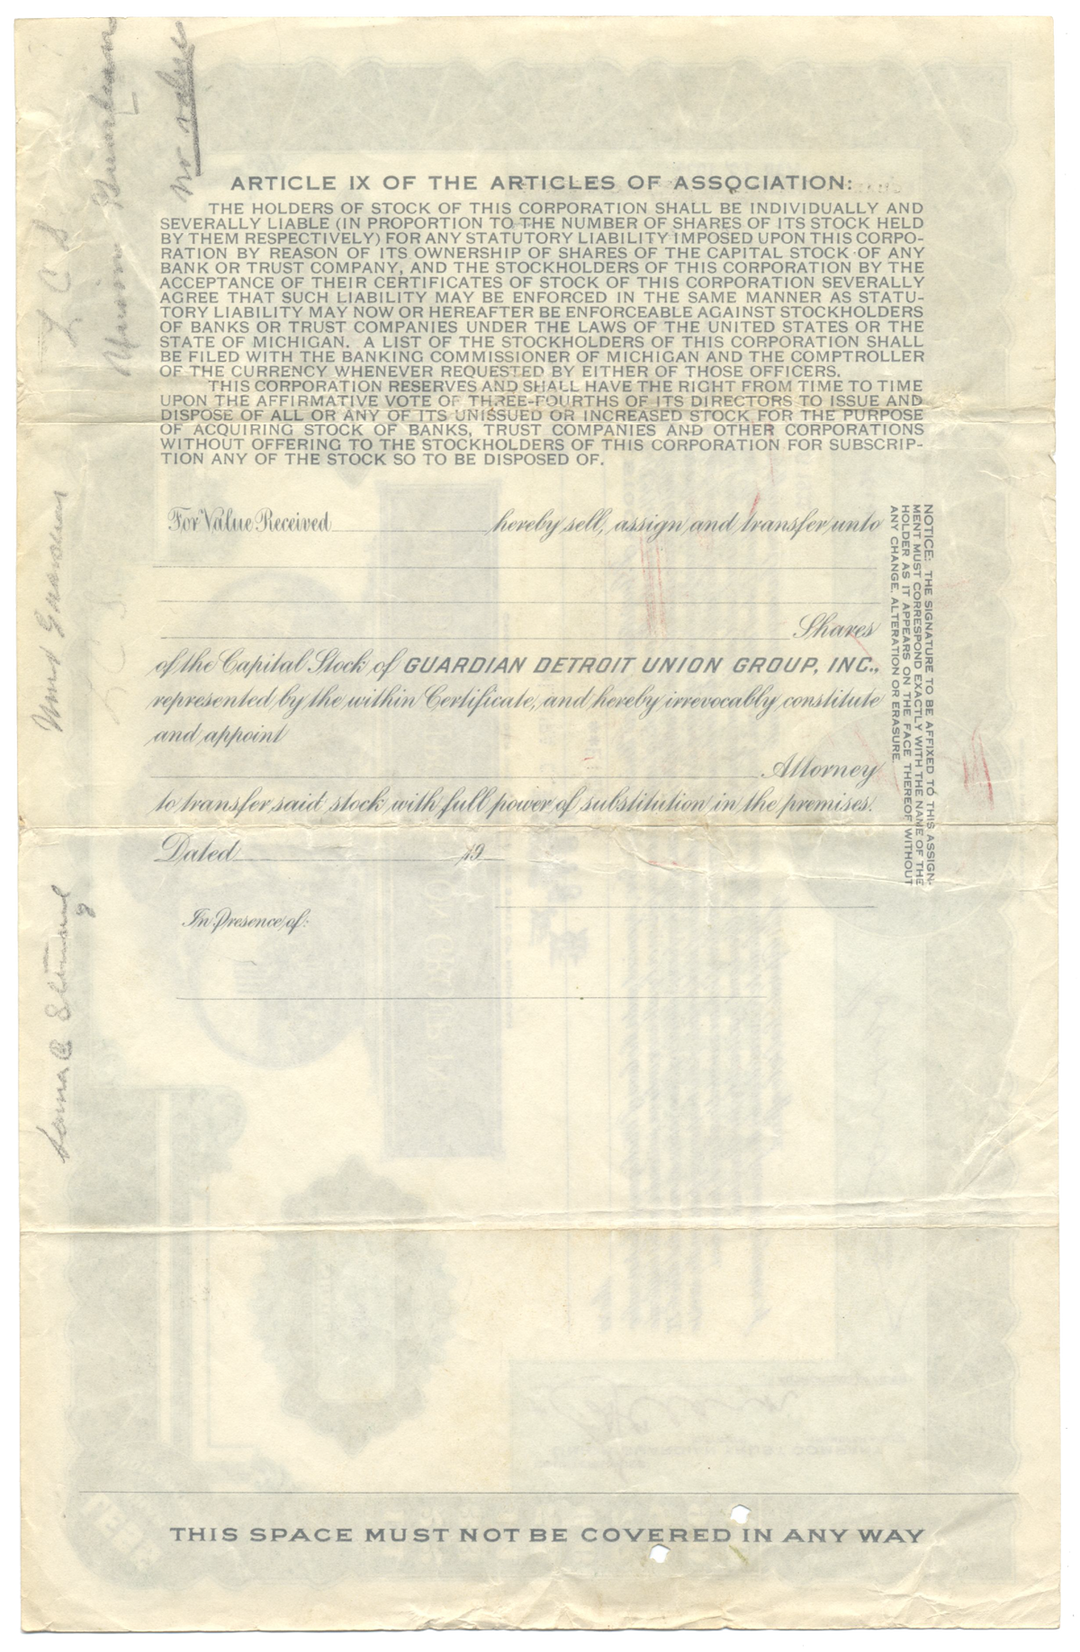 no value
L C S
ARTICLE IX OF THE ARTICLES OF ASSOCIATION:
THE HOLDERS OF STOCK OF THIS CORPORATION SHALL BE INDIVIDUALLY AND
SEVERALLY LIABLE (IN PROPORTION TO THE NUMBER OF SHARES OF ITS STOCK HELD
BY THEM RESPECTIVELY) FOR ANY STATUTORY LIABILITY IMPOSED UPON THIS CORPO-
RATION BY REASON OF ITS OWNERSHIP OF SHARES OF THE CAPITAL STOCK OF ANY
BANK OR TRUST COMPANY, AND THE STOCKHOLDERS OF THIS CORPORATION BY THE
ACCEPTANCE OF THEIR CERTIFICATES OF STOCK OF THIS CORPORATION SEVERALLY
AGREE THAT SUCH LIABILITY MAY BE ENFORCED IN THE SAME MANNER AS STATU-
TORY LIABILITY MAY NOW OR HEREAFTER BE ENFORCEABLE AGAINST STOCKHOLDERS
OF BANKS OR TRUST COMPANIES UNDER THE LAWS OF THE UNITED STATES OR THE
STATE OF MICHIGAN. A LIST OF THE STOCKHOLDERS OF THIS CORPORATION SHALL
BE FILED WITH THE BANKING COMMISSIONER OF MICHIGAN AND THE COMPTROLLER
OF THE CURRENCY WHENEVER REQUESTED BY EITHER OF THOSE OFFICERS.
THIS CORPORATION RESERVES AND SHALL HAVE THE RIGHT FROM TIME TO TIME
UPON THE AFFIRMATIVE VOTE OF THREE-FOURTHS OF ITS DIRECTORS TO ISSUE AND
DISPOSE OF ALL OR ANY OF ITS UNISSUED OR INCREASED STOCK FOR THE PURPOSE
OF ACQUIRING STOCK OF BANKS, TRUST COMPANIES AND OTHER CORPORATIONS
WITHOUT OFFERING TO THE STOCKHOLDERS OF THIS CORPORATION FOR SUBSCRIP-
TION ANY OF THE STOCK SO TO BE DISPOSED OF.
For Value Received hereby sell, assign and transfer unto
Shares
of the Capital Stock of GUARDIAN DETROIT UNION GROUP, INC.,
represented by the within Certificate, and hereby irrevocably constitute
and appoint
Attorney
to transfer said stock with full power of substitution in the premises.
Dated 19
In Presence of:
NOTICE: THE SIGNATURE TO BE AFFIXED TO THIS ASSIGN-
MENT MUST CORRESPOND EXACTLY WITH THE NAME OF THE
HOLDER AS IT APPEARS ON THE FACE THEREOF WITHOUT
ANY CHANGE, ALTERATION OR ERASURE.
THIS SPACE MUST NOT BE COVERED IN ANY WAY